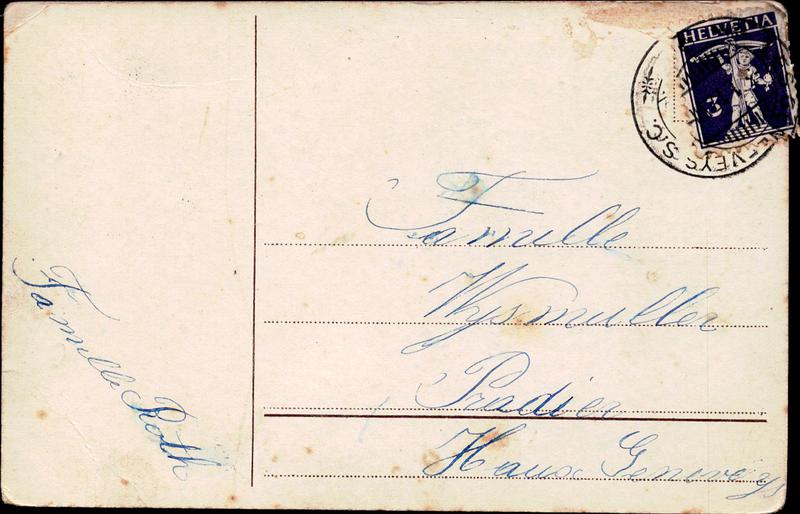 HELVETIA
3
EVEYS S/C.
Famille
Wysmuller
Pradier
Haux Geneveys
Famille Roth